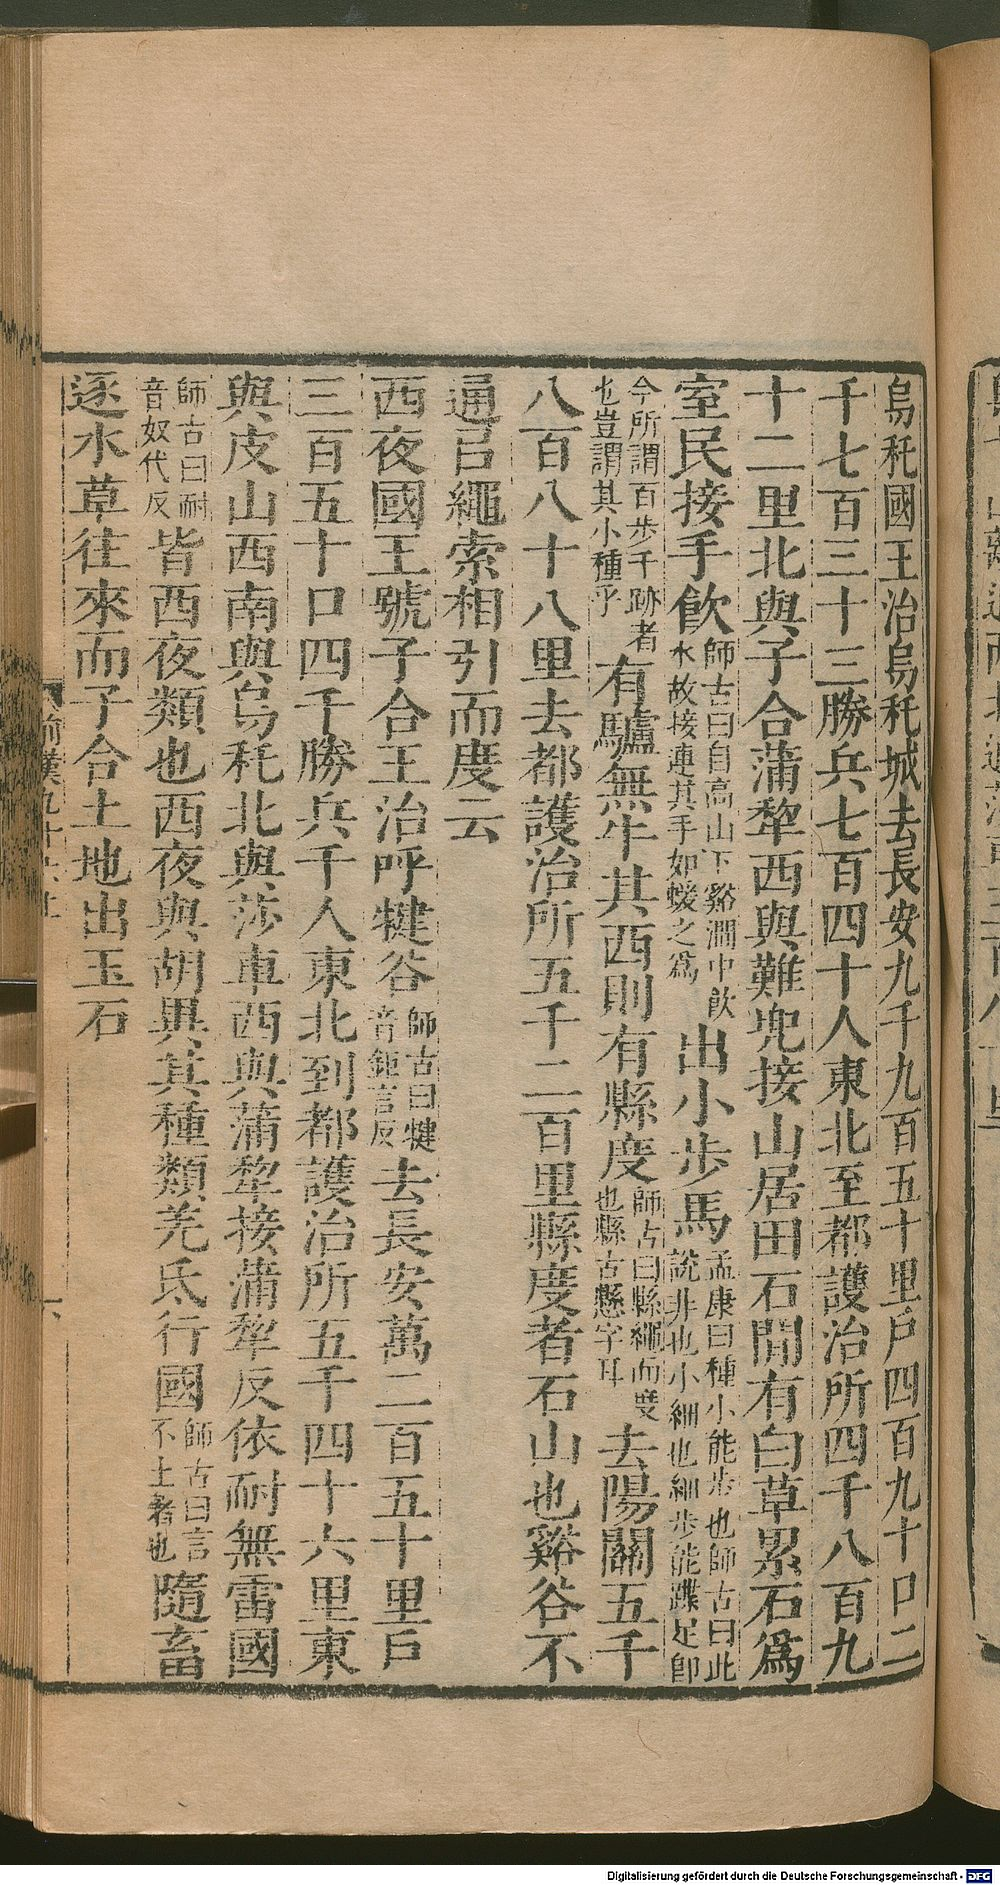 烏秅國王治烏秅城去長安九千九百五十里戶四百九十口二
千七百三十三勝兵七百四十人東北至都護治所四千八百九
十二里北與子合蒲犂西與難兜接山居田石閒有白草累石爲
室民接手飮師古曰自高山下谿澗中飮水故接連其手如蝯之爲出小步馬孟康曰種小能步也師古曰此說非也小細也細步能蹀足卽
今所謂百步千跡者也豈謂其小種乎有驢無牛其西則有縣度師古曰縣繩而度也縣古懸字耳去陽關五千
八百八十八里去都護治所五千二百里縣度者石山也谿谷不
通㠯繩索相引而度云
西夜國王號子合王治呼犍谷師古曰犍音鉅言反去長安萬二百五十里戶
三百五十口四千勝兵千人東北到都護治所五千四十六里東
與皮山西南與烏秅北與莎車西與蒲犂接蒲犂反依耐無雷國
師古曰耐音奴代反皆西夜類也西夜與胡異其種類羌氐行國師古曰言不土著也隨畜
逐水草往來而子合土地出玉石
前漢九十六上
六
Digitalisierung gefördert durch die Deutsche Forschungsgemeinschaft - DFG